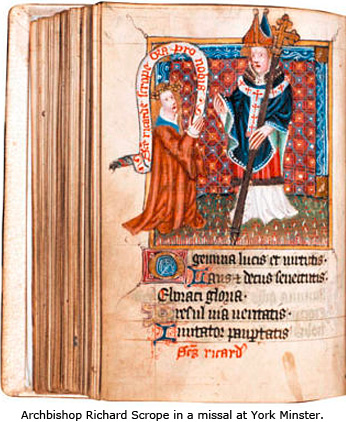 Sce ricarde scrope ora pro nobis
O gemma lucis et virtutis
Laus et decus senectutis
Eboraci gloria
Presul via veritatis
Imitator
Scs ricard
Archbishop Richard Scrope in a missal at York Minster.